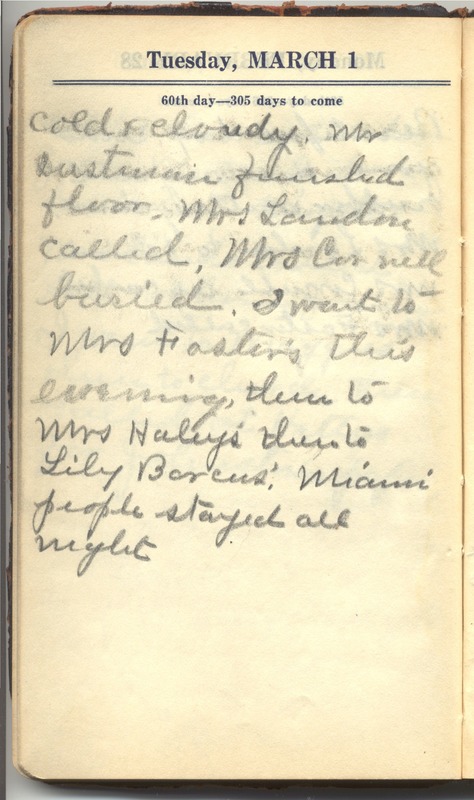 Tuesday, MARCH 1
60th day—305 days to come
cold & cloudy. Mr
finished
floor. Mrs Landon
called. Mrs Cornell
buried. I went to
Mrs Foster's this
evening, then to
Mrs Haleys then to
Lily Barcus'. Miami
people stayed all
night